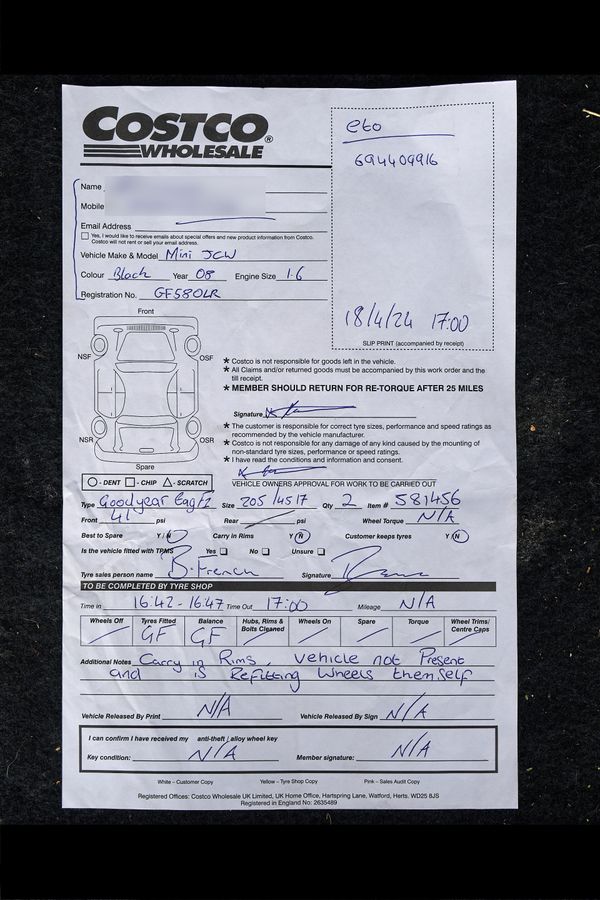 COSTCO
WHOLESALE
eto
694409916
Name
Mobile
Email Address
Yes, I would like to receive emails about special offers and new product information from Costco.
Costco will not rent or sell your email address.
Vehicle Make & Model Mini JCW
Colour Black Year 08 Engine Size 1.6
Registration No. GF58OLR
18/4/24 17:00
SLIP PRINT (accompanied by receipt)
Front
NSF
OSF
NSR
OSR
Spare
* Costco is not responsible for goods left in the vehicle.
* All Claims and/or returned goods must be accompanied by this work order and the
till receipt.
* MEMBER SHOULD RETURN FOR RE-TORQUE AFTER 25 MILES
Signature
* The customer is responsible for correct tyre sizes, performance and speed ratings as
recommended by the vehicle manufacturer.
* Costco is not responsible for any damage of any kind caused by the mounting of
non-standard tyre sizes, performance or speed ratings.
* I have read the conditions and information and consent.
- DENT - CHIP - SCRATCH
VEHICLE OWNERS APPROVAL FOR WORK TO BE CARRIED OUT
Type Goodyear EagF1 Size 205/4517 Qty 2 Item # 581456
Front 41 psi Rear psi Wheel Torque N/A
Best to Spare Y/N Carry in Rims Y/N Customer keeps tyres Y/N
Is the vehicle fitted with TPMS Yes No Unsure
Tyre sales person name B.French Signature
TO BE COMPLETED BY TYRE SHOP
Time in 16:42 - 16:47 Time Out 17:00 Mileage N/A
Wheels Off Tyres Fitted Balance Hubs, Rims & Bolts Cleaned Wheels On Spare Torque Wheel Trims/ Centre Caps
GF GF
Additional Notes Carry in Rims, Vehicle not Present
and is Refitting Wheels themself
Vehicle Released By Print N/A Vehicle Released By Sign N/A
I can confirm I have received my anti-theft / alloy wheel key
Key condition: N/A Member signature: N/A
White – Customer Copy Yellow – Tyre Shop Copy Pink – Sales Audit Copy
Registered Offices: Costco Wholesale UK Limited, UK Home Office, Hartspring Lane, Watford, Herts. WD25 8JS
Registered in England No: 2635489